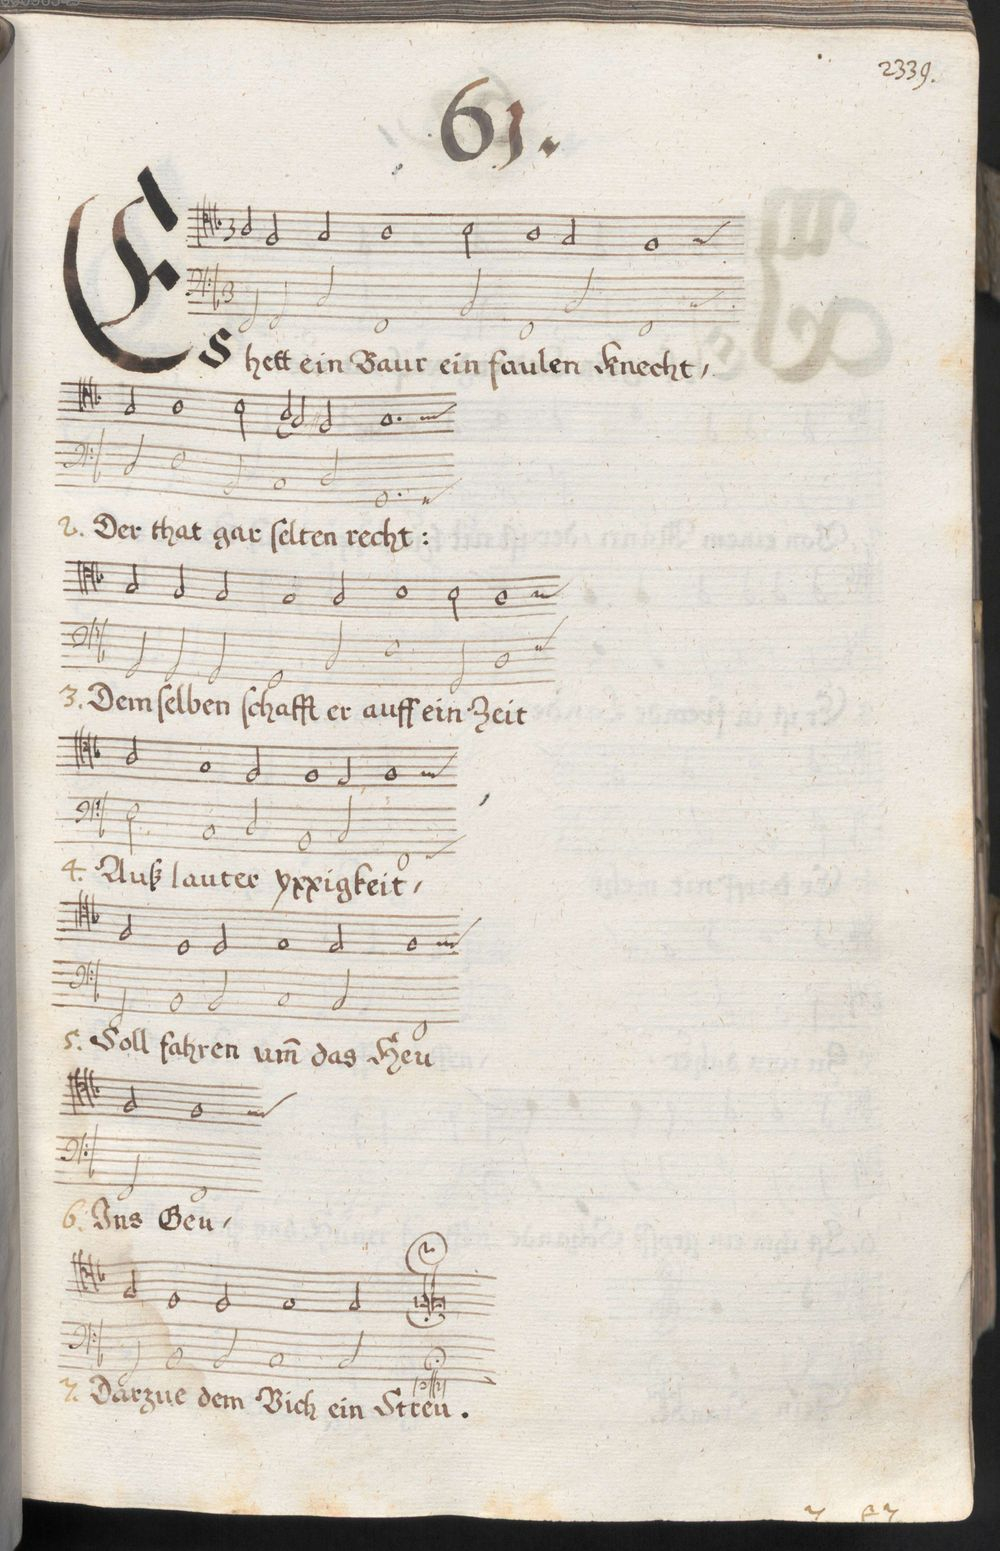 2339.
61.
Es hett ein Baur ein faulen Knecht,
2. Der that gar selten recht:
3. Demselben schafft er auff ein Zeit
4. Auß lauter yxxigkeit,
5. Soll fahren um̄ das Heu
6. Ins Geu,
7. Darzue dem Vich ein Streu.